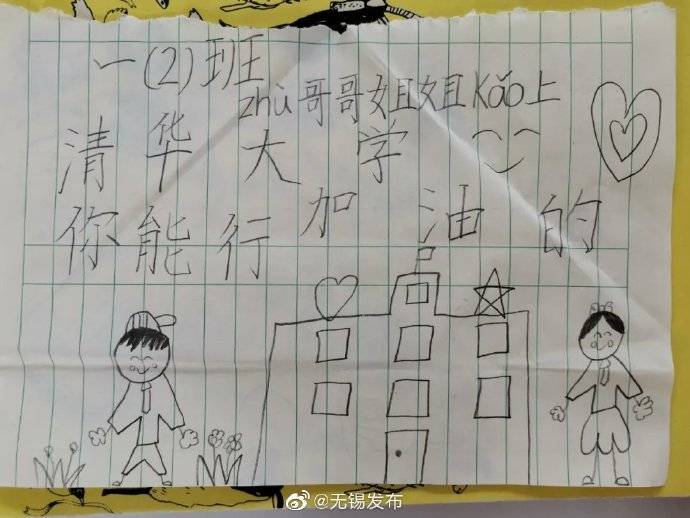 一(2)班
zhù哥哥姐姐kǎo上
清华大学
你能行加油的
@无锡发布